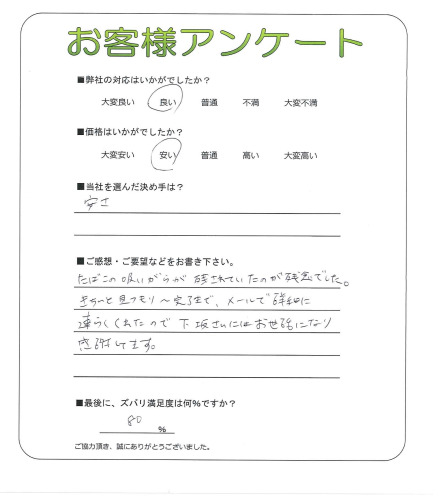 お客様アンケート
■弊社の対応はいかがでしたか？
大変良い 良い 普通 不満 大変不満
■価格はいかがでしたか？
大変安い 安い 普通 高い 大変高い
■当社を選んだ決め手は？
安さ
■ご感想・ご要望などをお書き下さい。
たばこの吸いがらが残されていたのが残念でした。
きちっと見つもり〜完了まで、メールで詳細に
連らくくれたので下坂さんにはお世話になり
感謝してます。
■最後に、ズバリ満足度は何％ですか？
80 ％
ご協力頂き、誠にありがとうございました。